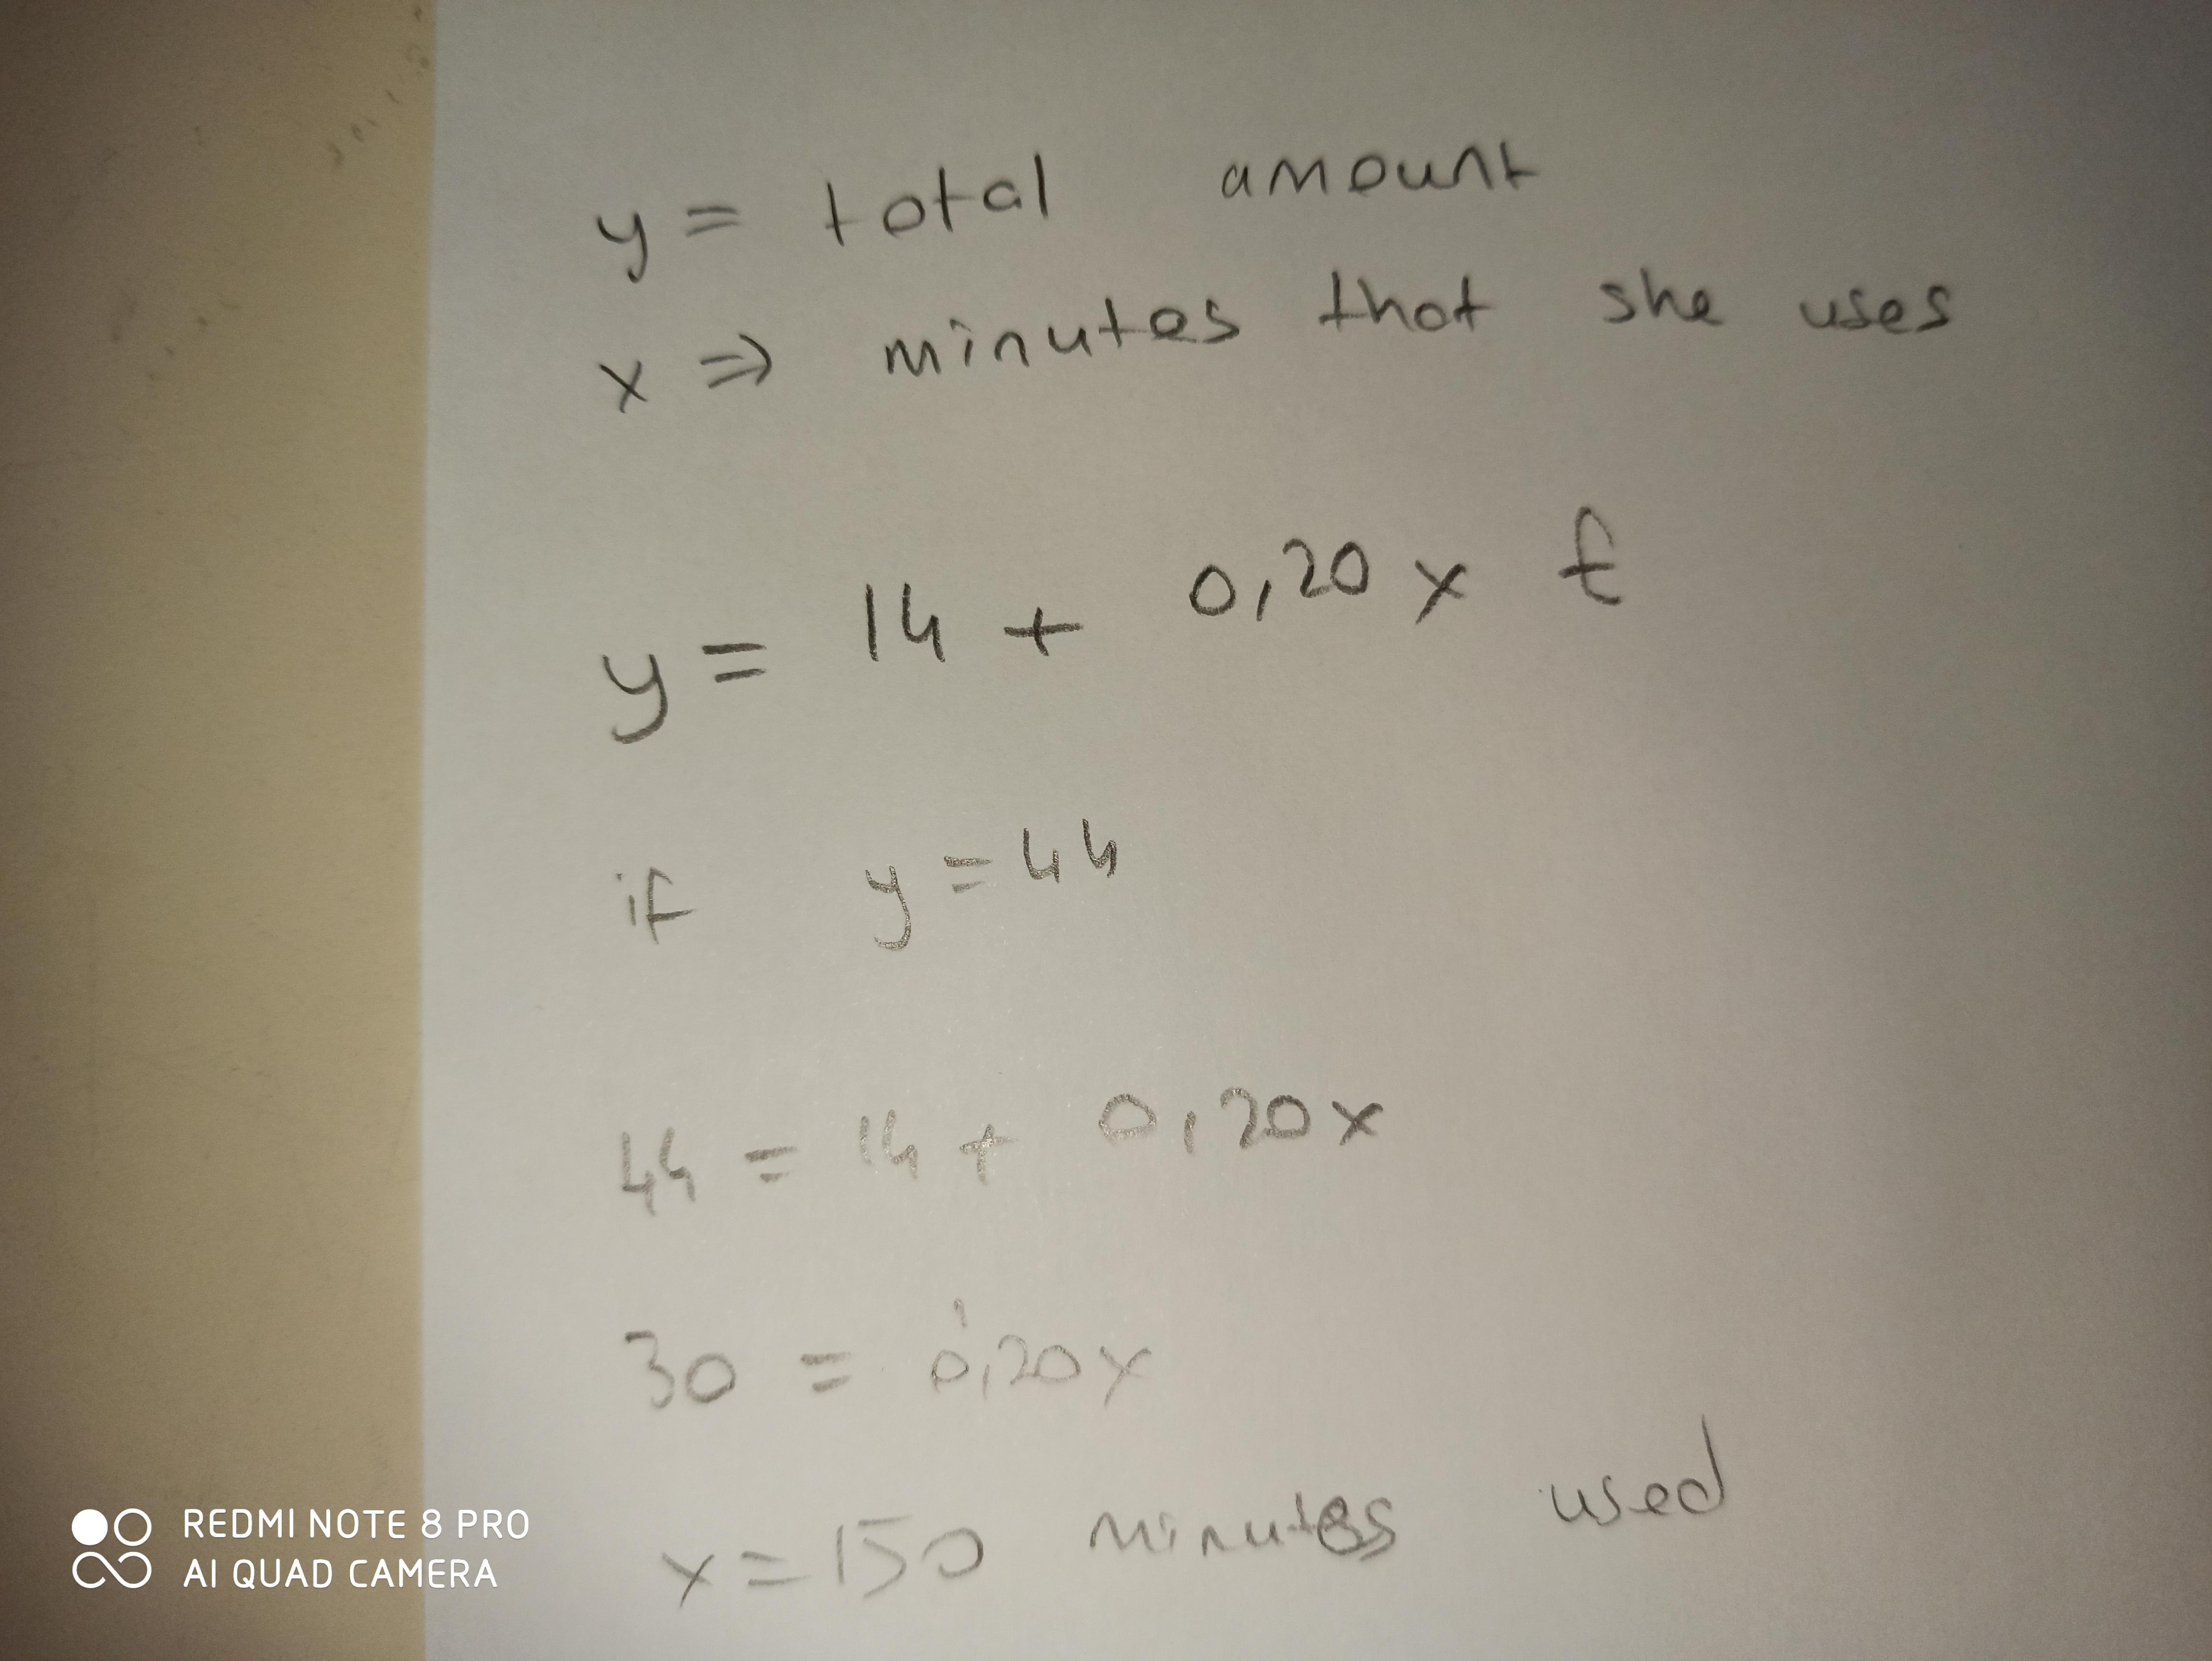 y = total amount
x ⇒ minutes that she uses
y = 14 + 0,20 x £
if y = 44
44 = 14 + 0,20x
30 = 0,20x
x = 150 minutes used
REDMI NOTE 8 PRO
AI QUAD CAMERA